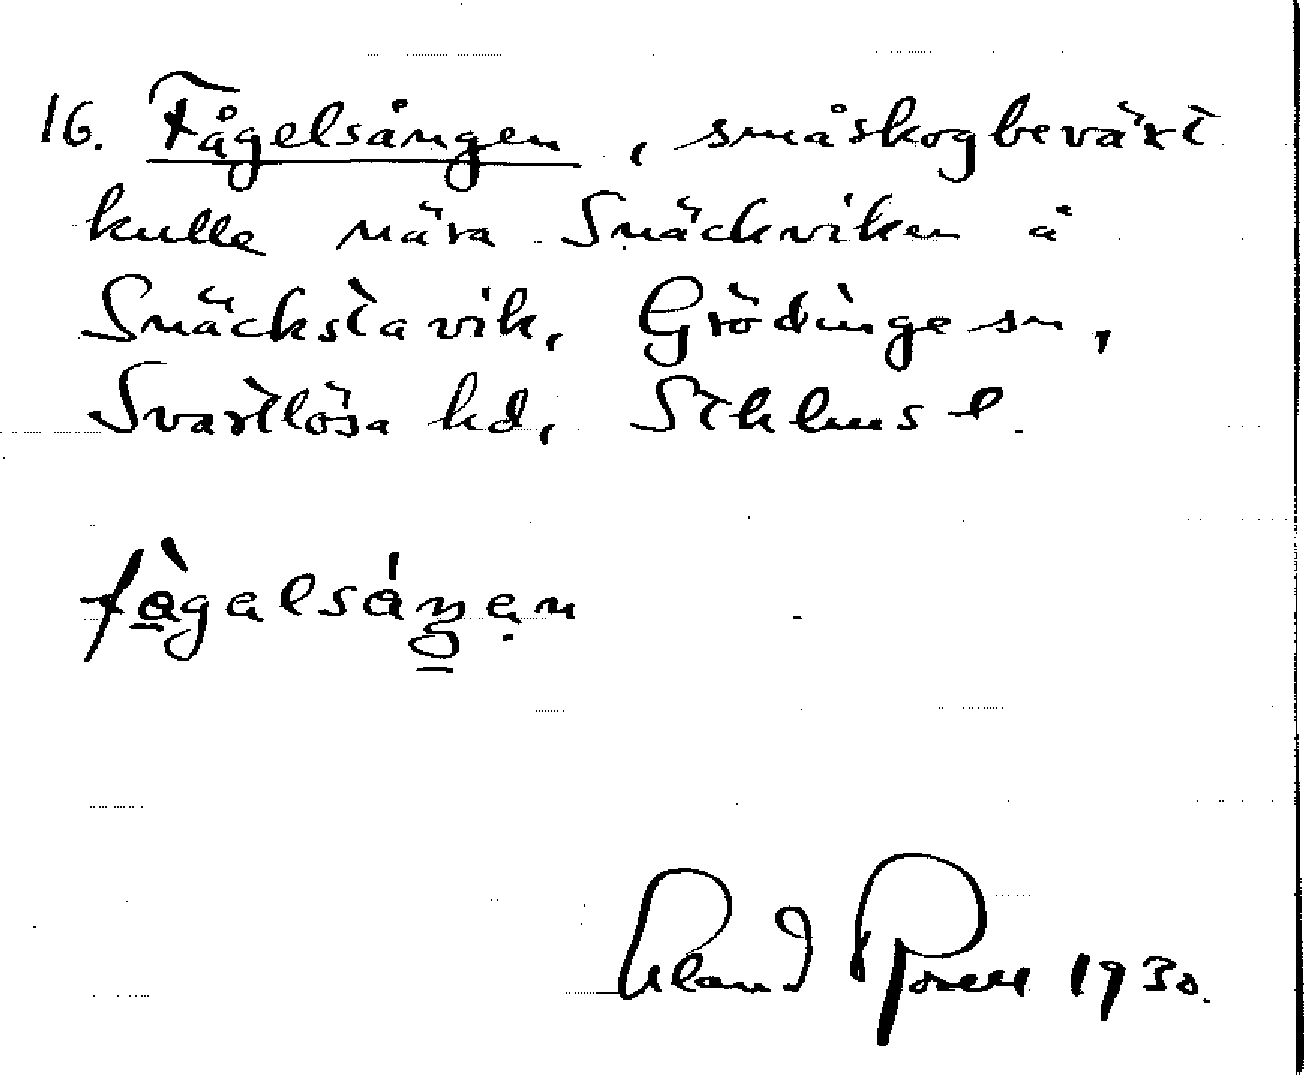 16. Fågelsången, småskogbeväxt
kulle nära Snäckviken å
Snäckstavik, Grödinge sn,
Svartlösa hd, Sthlms l.
fågalsáŋen
1930.